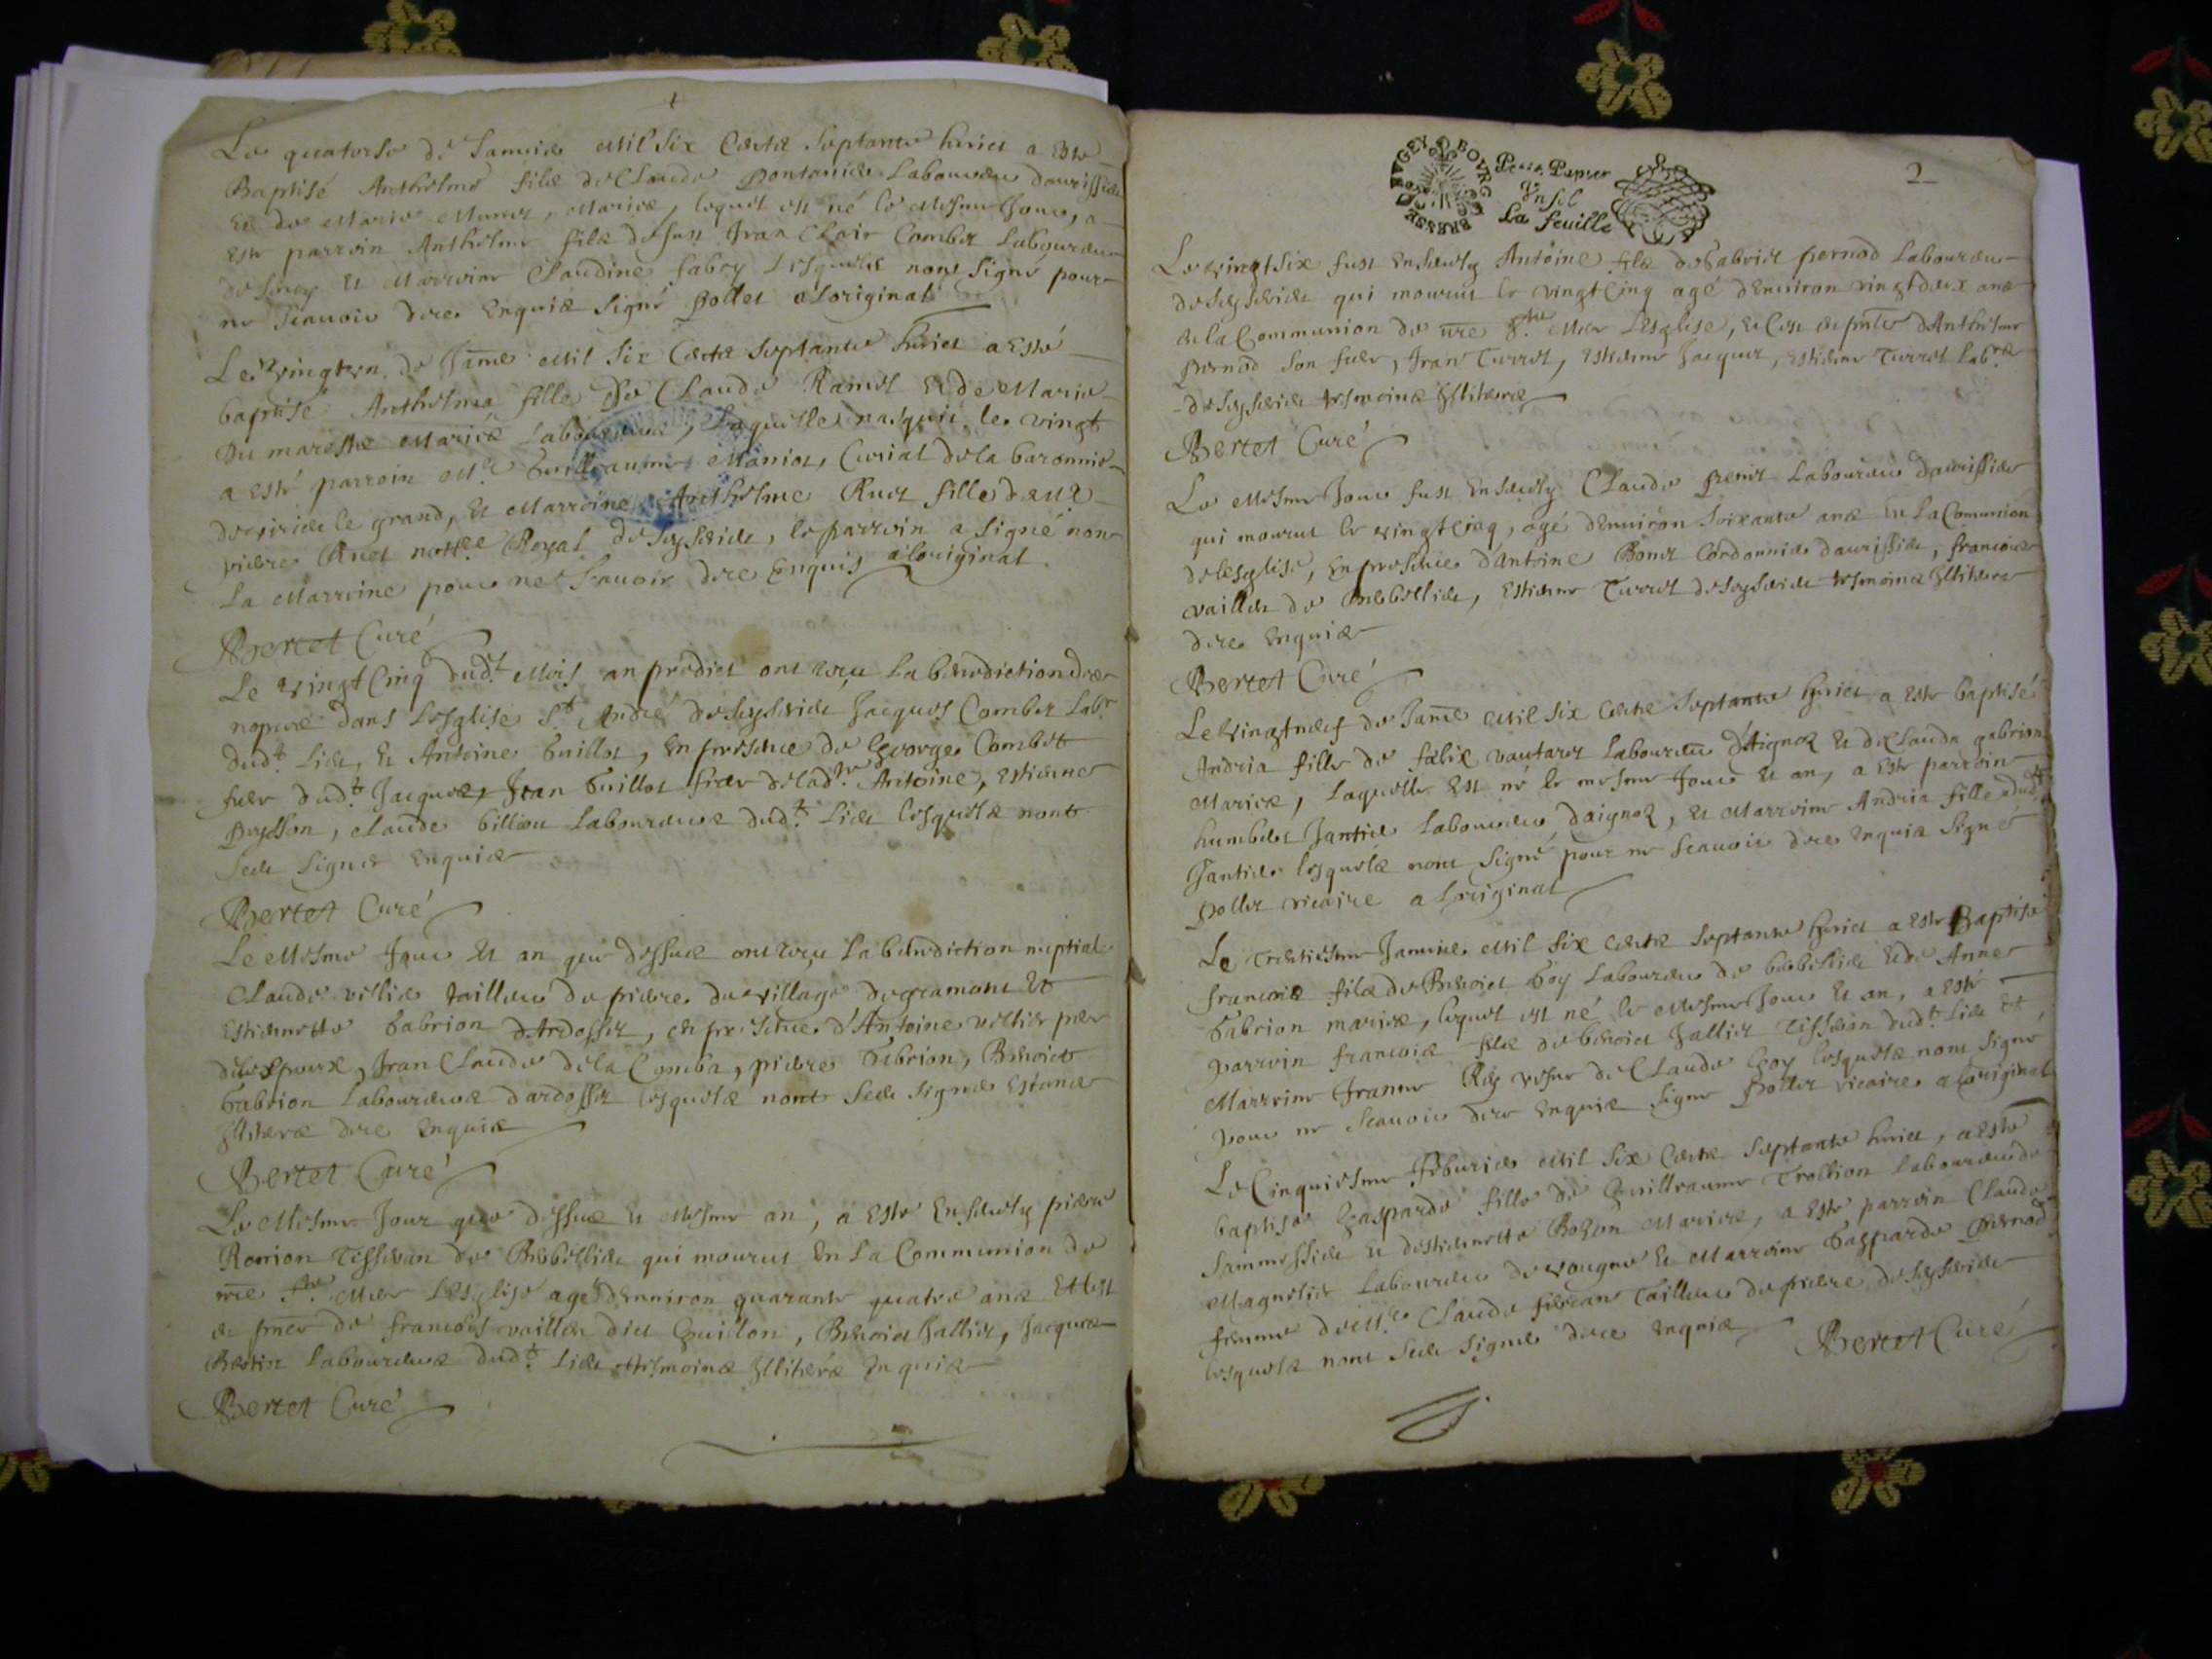 Le quatorse de Januier Mil Six Cents Septante huict a este
Baptisé Anthelme fils de Claude Pontanier Laboureur
Et de Marie Munet, Mariés, lequel est né le Mesme Jour, a
este parrein Anthelme fils de feu Jean Clair Combet Laboureur
Et Marreine Claudine fabry Lesquels nont signé pour
ne scauoir dere Enquis Signé Pollet a Loriginal
Le vingtvn de Janr Mil Six Cents Septante huict a Esté
baptisé Anthelma fille De Claude Ramel Et de Marie
Du mareste Mariés Laboureurs, Laquelle nasquit le vingt
a Esté parrein Mre Guilliaume Maniot, Curial de la baronnie
de virieu le grand, Et Marreine Anthelme Ruet fille
pierre Ruet nottre Royal de Seysérieu, le parrein a signé non
La Marreine pour ne Scauoir dere Enquis a loriginal
Bertet Curé
Le vingtCinq dudt Mois an predict ont reçu La benediction des
nopces dans Lesglise St André de Seysérieu Jacques Combet Labr
dudt Lieu, Et Antoine Guillot, en presence de George Combet
frere dudt Jacques, Jean Guillot frere de ladte Antoine, Estienne
Claude billiou Laboureurs dudt Lieu lesquels nont
sceu signer Enquis
Bertet Curé
Le Mesme Jour Et an que dessus ont reçu La benediction nuptiale
Claude vellie tailleur de pierre du village de cramont Et
Estiennette Gabrion dArdosset, en presence d'Antoine vellie pere
de lespoux, Jean Claude de la Comba, pierre Gabrion, Benoict
Gabrion Laboureurs dardosset lesquels nont sceu signer Estant
Illiteres dere Enquis
Bertet Curé
Le Mesme Jour que dessus Et Mesme an, a Esté Enseuely pierre
Ronion Tisseran de Bebellieu qui mourut En La Communion de
nre Ste Mere LEsglise agé d'Enuiron quarante quatre ans Et Cest
en pnce de francois vaillet dict Guillon, Benoict Jallier, Jacques
Bertin Laboureurs dudt Lieu tesmoins Illiteres Enquis
Bertet Curé
BRESSE BVGEY BOVRG
Petit Papier
Vn sol
La feuille
2
Le vingtsix fust Enseuely Antoine fils de Gabriel pernod Laboureur
de Seysérieu qui mourut le vingtCinq agé dEnuiron vingtdeux ans
en la Communion de nre Ste Mere LEsglise, et Cest en pnce dAnthelme
Pernod son frere, Jean Turrel, Estienne Jacquet, Estienne Turrel Labrs
de Seysérieu tesmoins Illiteres
Bertet Curé
Le Mesme Jour fust Enseuely Claude Laboureur
qui mourut le vingtCinq, agé dEnuiron soixante ans En La Communion
de lesglise, En presence dAntoine Bonet Cordonnier, francois
vaillet de Bebellieu, Estienne Turrel de Seysérieu tesmoins Illiteres
dere Enquis
Bertet Curé
Le vingtneuf de Janr Mil Six Cents Septante huict a Este baptisé
Andria fille de felix vautaret Laboureur d'Aignoz Et de Claude gabrion
Mariés, Laquelle Est né le mesme Jour Et an, a Este parrein
humbert Jantie Laboureur daignoz, Et Marreine Andria fille dudt
Jantie lesquels nont signé pour ne scauoir dere Enquis signé
Pollet vicaire a Loriginal
Le Trentiesme Januier Mil six cents Septante huict a Este Baptisé
francois fils de Benoict Goy Laboureur de bebellieu Et de Anne
Gabrion mariés, lequel est né le Mesme Jour Et an, a Esté
parrein francois fils de benoict Jallier Tisseran dudt Lieu Et
Marreine Jeanne Rey vefue de Claude Goy lesquels nont signé
pour ne scauoir dere Enquis signé Pollet vicaire a loriginal
Le Cinquiesme feburier Mil Six Cents Septante huict, a Esté
baptisé Gaspardo fille de Guilliaume Trollion Laboureur de
Et destiennette Bozon Mariés, a Esté parrein Claude
Magnelier Laboureur de vougne Et Marreine Gasparde Pernod
femme de Mre Claude Tailleur de pierre de Seysérieu
lesquels nont sceu signer dere Enquis
Bertet Curé